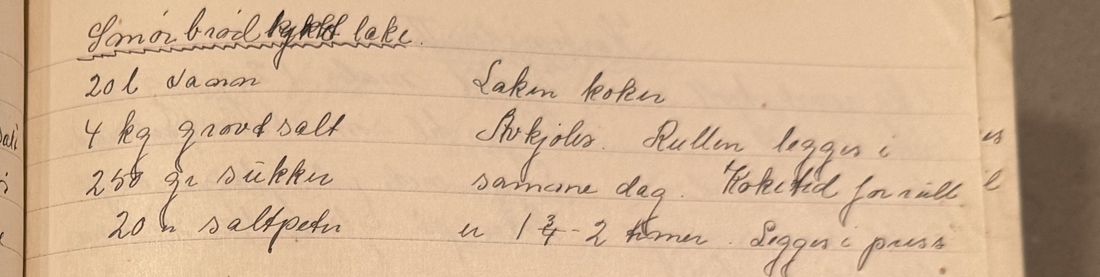 Smørbrød lake.
20 l vann
4 kg grovt salt
250 gr sukker
20 " saltpeter
Laken koker
Avkjøles. Rullen legges i
samme dag. Koketid for rull
er 1 3/4 - 2 timer. Legges i press